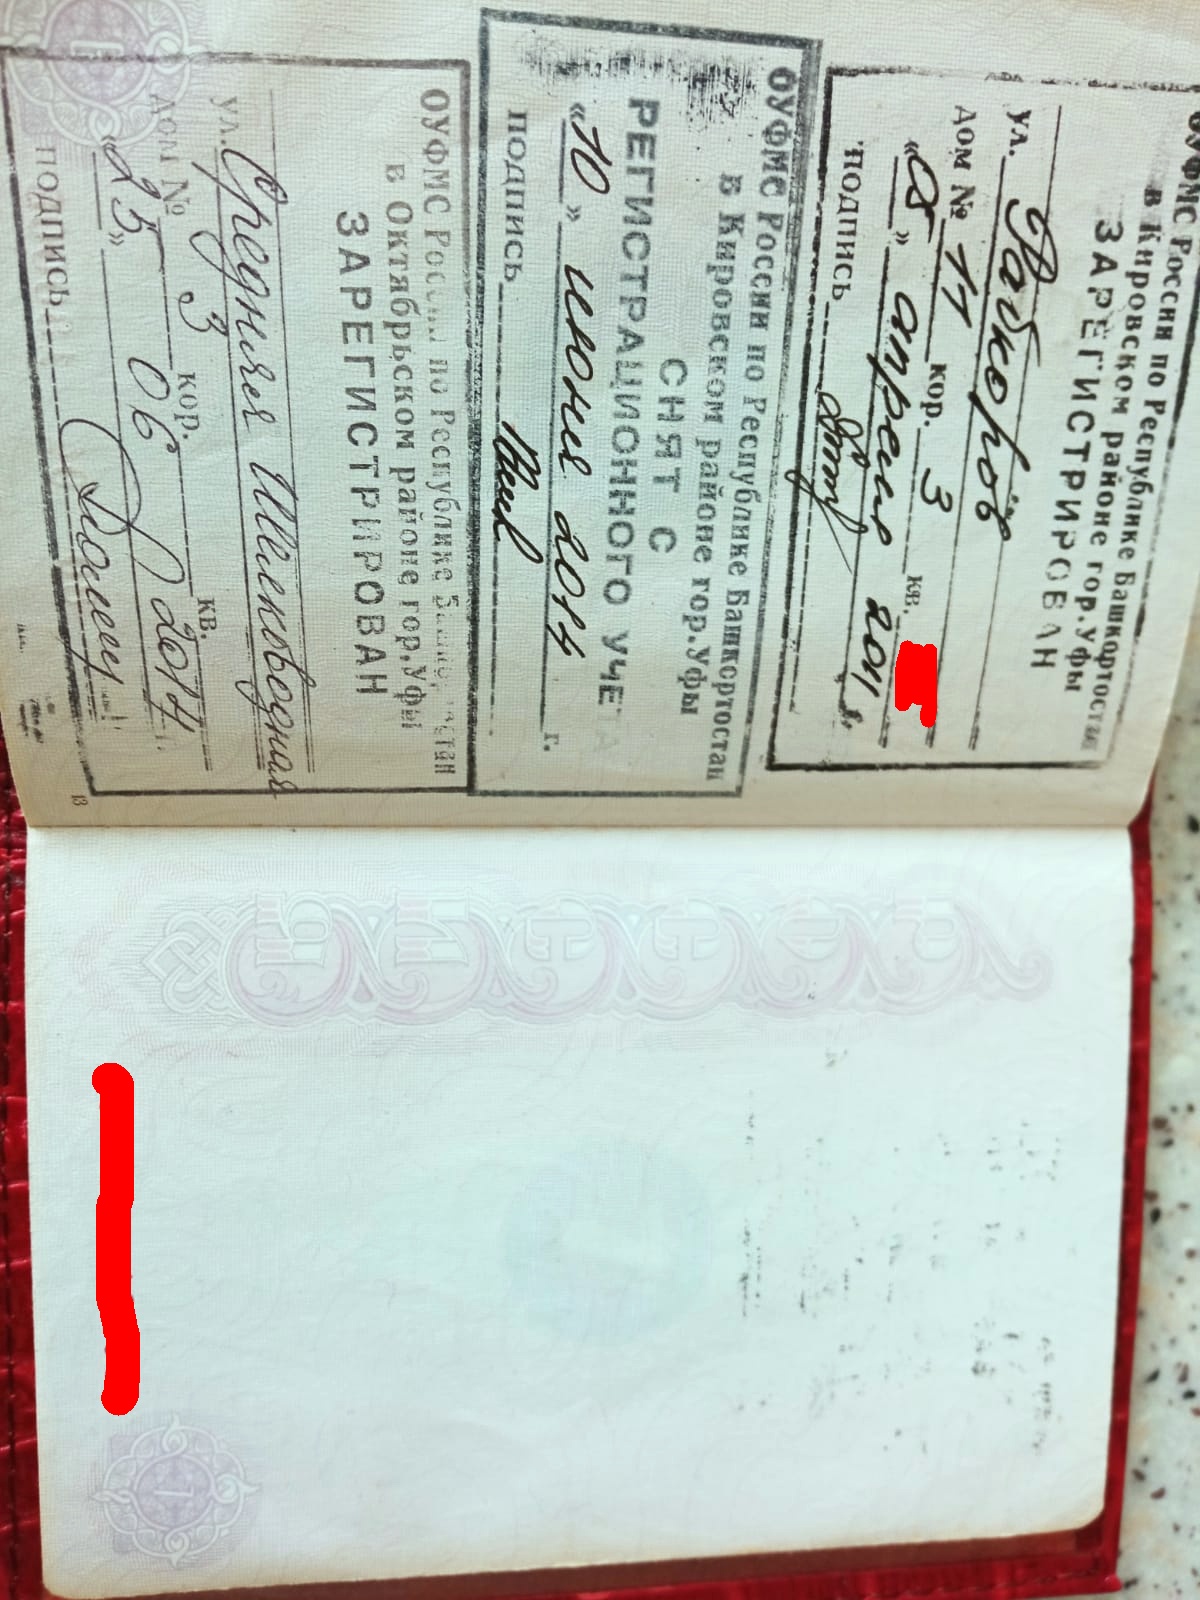 ОУФМС России по Республике Башкортостан
в Кировском районе гор.Уфы
ЗАРЕГИСТРИРОВАН
ул. Рабкоров
дом № 11 кор. 3 кв.
«05» апреля 2011 г.
подпись
ОУФМС России по Республике Башкортостан
в Кировском районе гор.Уфы
СНЯТ С
РЕГИСТРАЦИОННОГО УЧЕТА
«10» июня 2014 г.
подпись
ОУФМС России по Республике Башкортостан
в Октябрьском районе гор.Уфы
ЗАРЕГИСТРИРОВАН
ул. Средняя
дом № 3 кор. кв.
«25» 06 2014
подпись
13